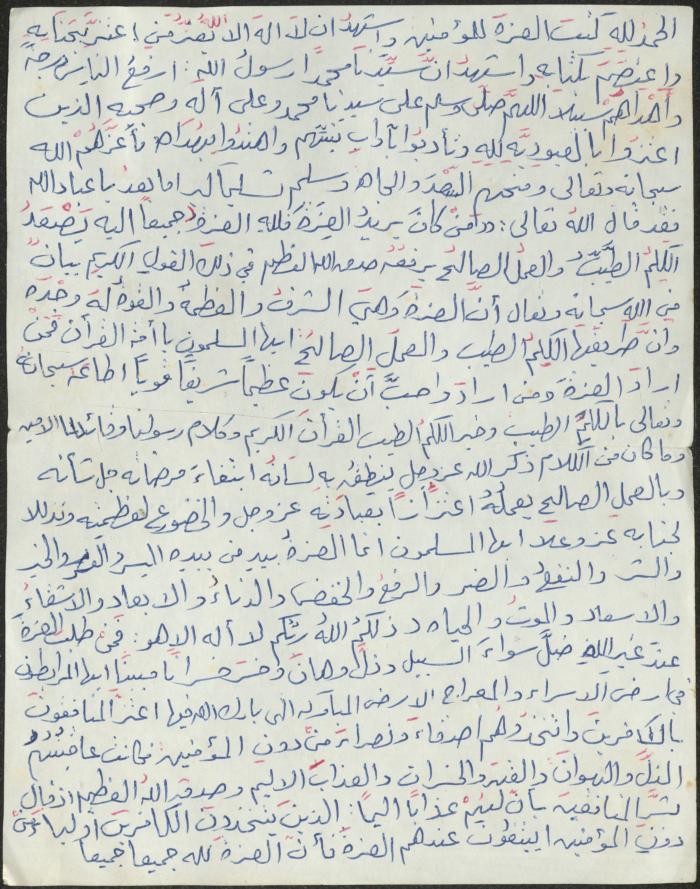 الحمد لله كتب العزة للمؤمنين واشهد ان لا اله الا الله يُعز من اعتز بجنابه
واعتصم بكتابه واشهد ان سيدنا محمدا رسول الله: ارفع الناس درجة
وأهداهم سبيلا اللهم صلى وسلم على سيدنا محمد وعلى آله وصحبه الذين
اعتزوا بالعبودية لله وتأدبوا بآداب نبيهم واهتدوا بهداه فأعزهم الله
سبحانه وتعالى ومنحهم المجد والجاه وسلم تسليما كثيرا اما بعد يا عباد الله
فقد قال الله تعالى: ((من كان يريد العزة فلله العزة جميعا اليه يَصْعَدُ
الكلم الطيب والعمل الصالح يرفعه صدق الله العظيم في ذلك القول الكريم بيان
من الله سبحانه وتعال أن العزة وهي الشرف والعظمة والقوة له وحده
وان طريقها الكلم الطيب والعمل الصالح ايها المسلمون يا أمة القرآن فمن
اراد العزة ومن اراد واحب أن يكون عظيما شريفا قويا اطاعه سبحانه
وتعالى بالكلم الطيب وخير الكلم الطيب القرآن الكريم وكلام رسولنا وقائدنا الامين
وما كان من الكلام ذكر الله عز وجل ينطق به لسانه ابتغاء مرضاته جل شأنه
وبالعمل الصالح يعمله اعتزازا بعبادته عز وجل والخضوع لعظمته وتذللا
لجنابه عز وعلا ايها المسلمون انما العزة بيد من بيده اليسر والعسر والخير
والشر والنفع والضر والرفع والخفض والدناء والابعاد والاشقاء
والاسعاد والموت والحياه ذلكم الله ربكم لا أله الا هو: فمن طلب العزة
عند غير الله ضل سواء السبيل وذل وهان وخسر خسرانا مبينا ايها المرابطون
في ارض الاسراء والمعراج الارض المباركه التي بارك الله فيها اعتز المنافقون
بالكافرين واتخذوهم اصدقاء ونصراء من دون المؤمنين فكانت عاقبتهم
الذل والهوان والقهر والخسران والعذاب الاليم وصدق الله العظيم اذ قال
بشر المنافقين بأن لهم عذابا اليما: الذين يتخذون الكافرين اولياء من
دون المؤمنين ايبتغون عندهم العزة فأن العزة لله جميعا جميعا